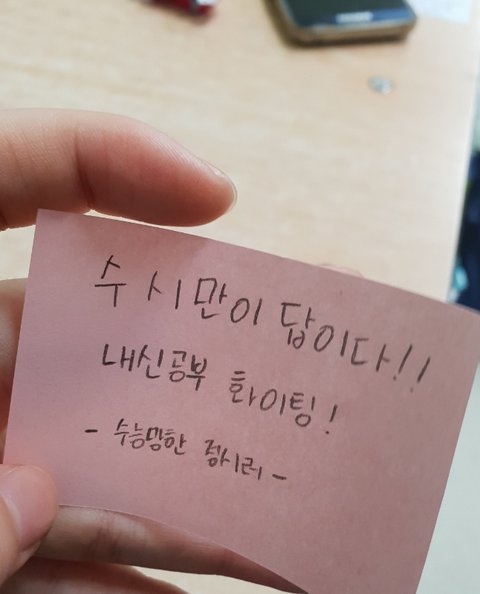 수시만이 답이다!!
내신공부 화이팅!
- 수능망한 정시러 -